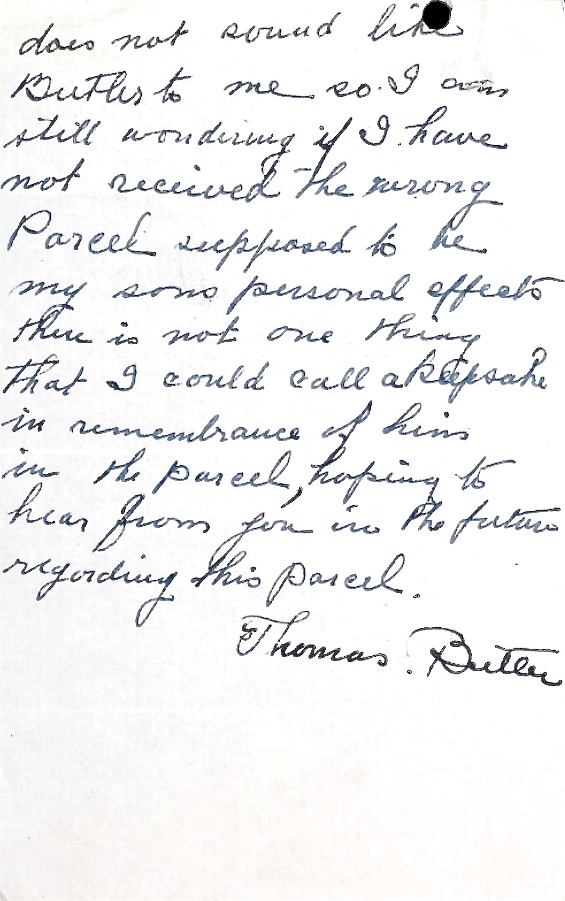 does not sound like
Butler to me so. I am
still wondering if I have
not received the wrong
Parcel supposed to be
my sons personal effects
there is not one thing
that I could call a keepsake
in remembrance of him
in the parcel, hoping to
hear from you in the future
regarding this parcel.
Thomas. Butler